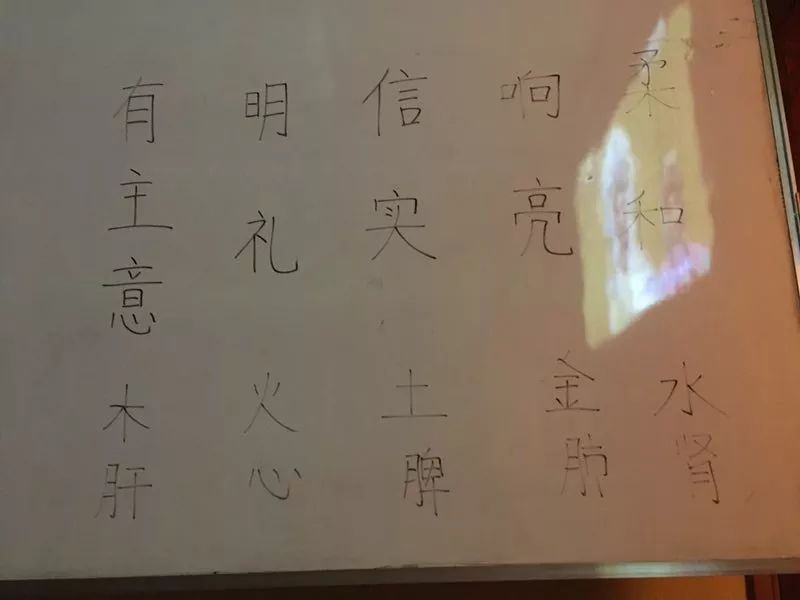 有主意
明礼
信实
响亮
柔和
木肝
火心
土脾
金肺
水肾